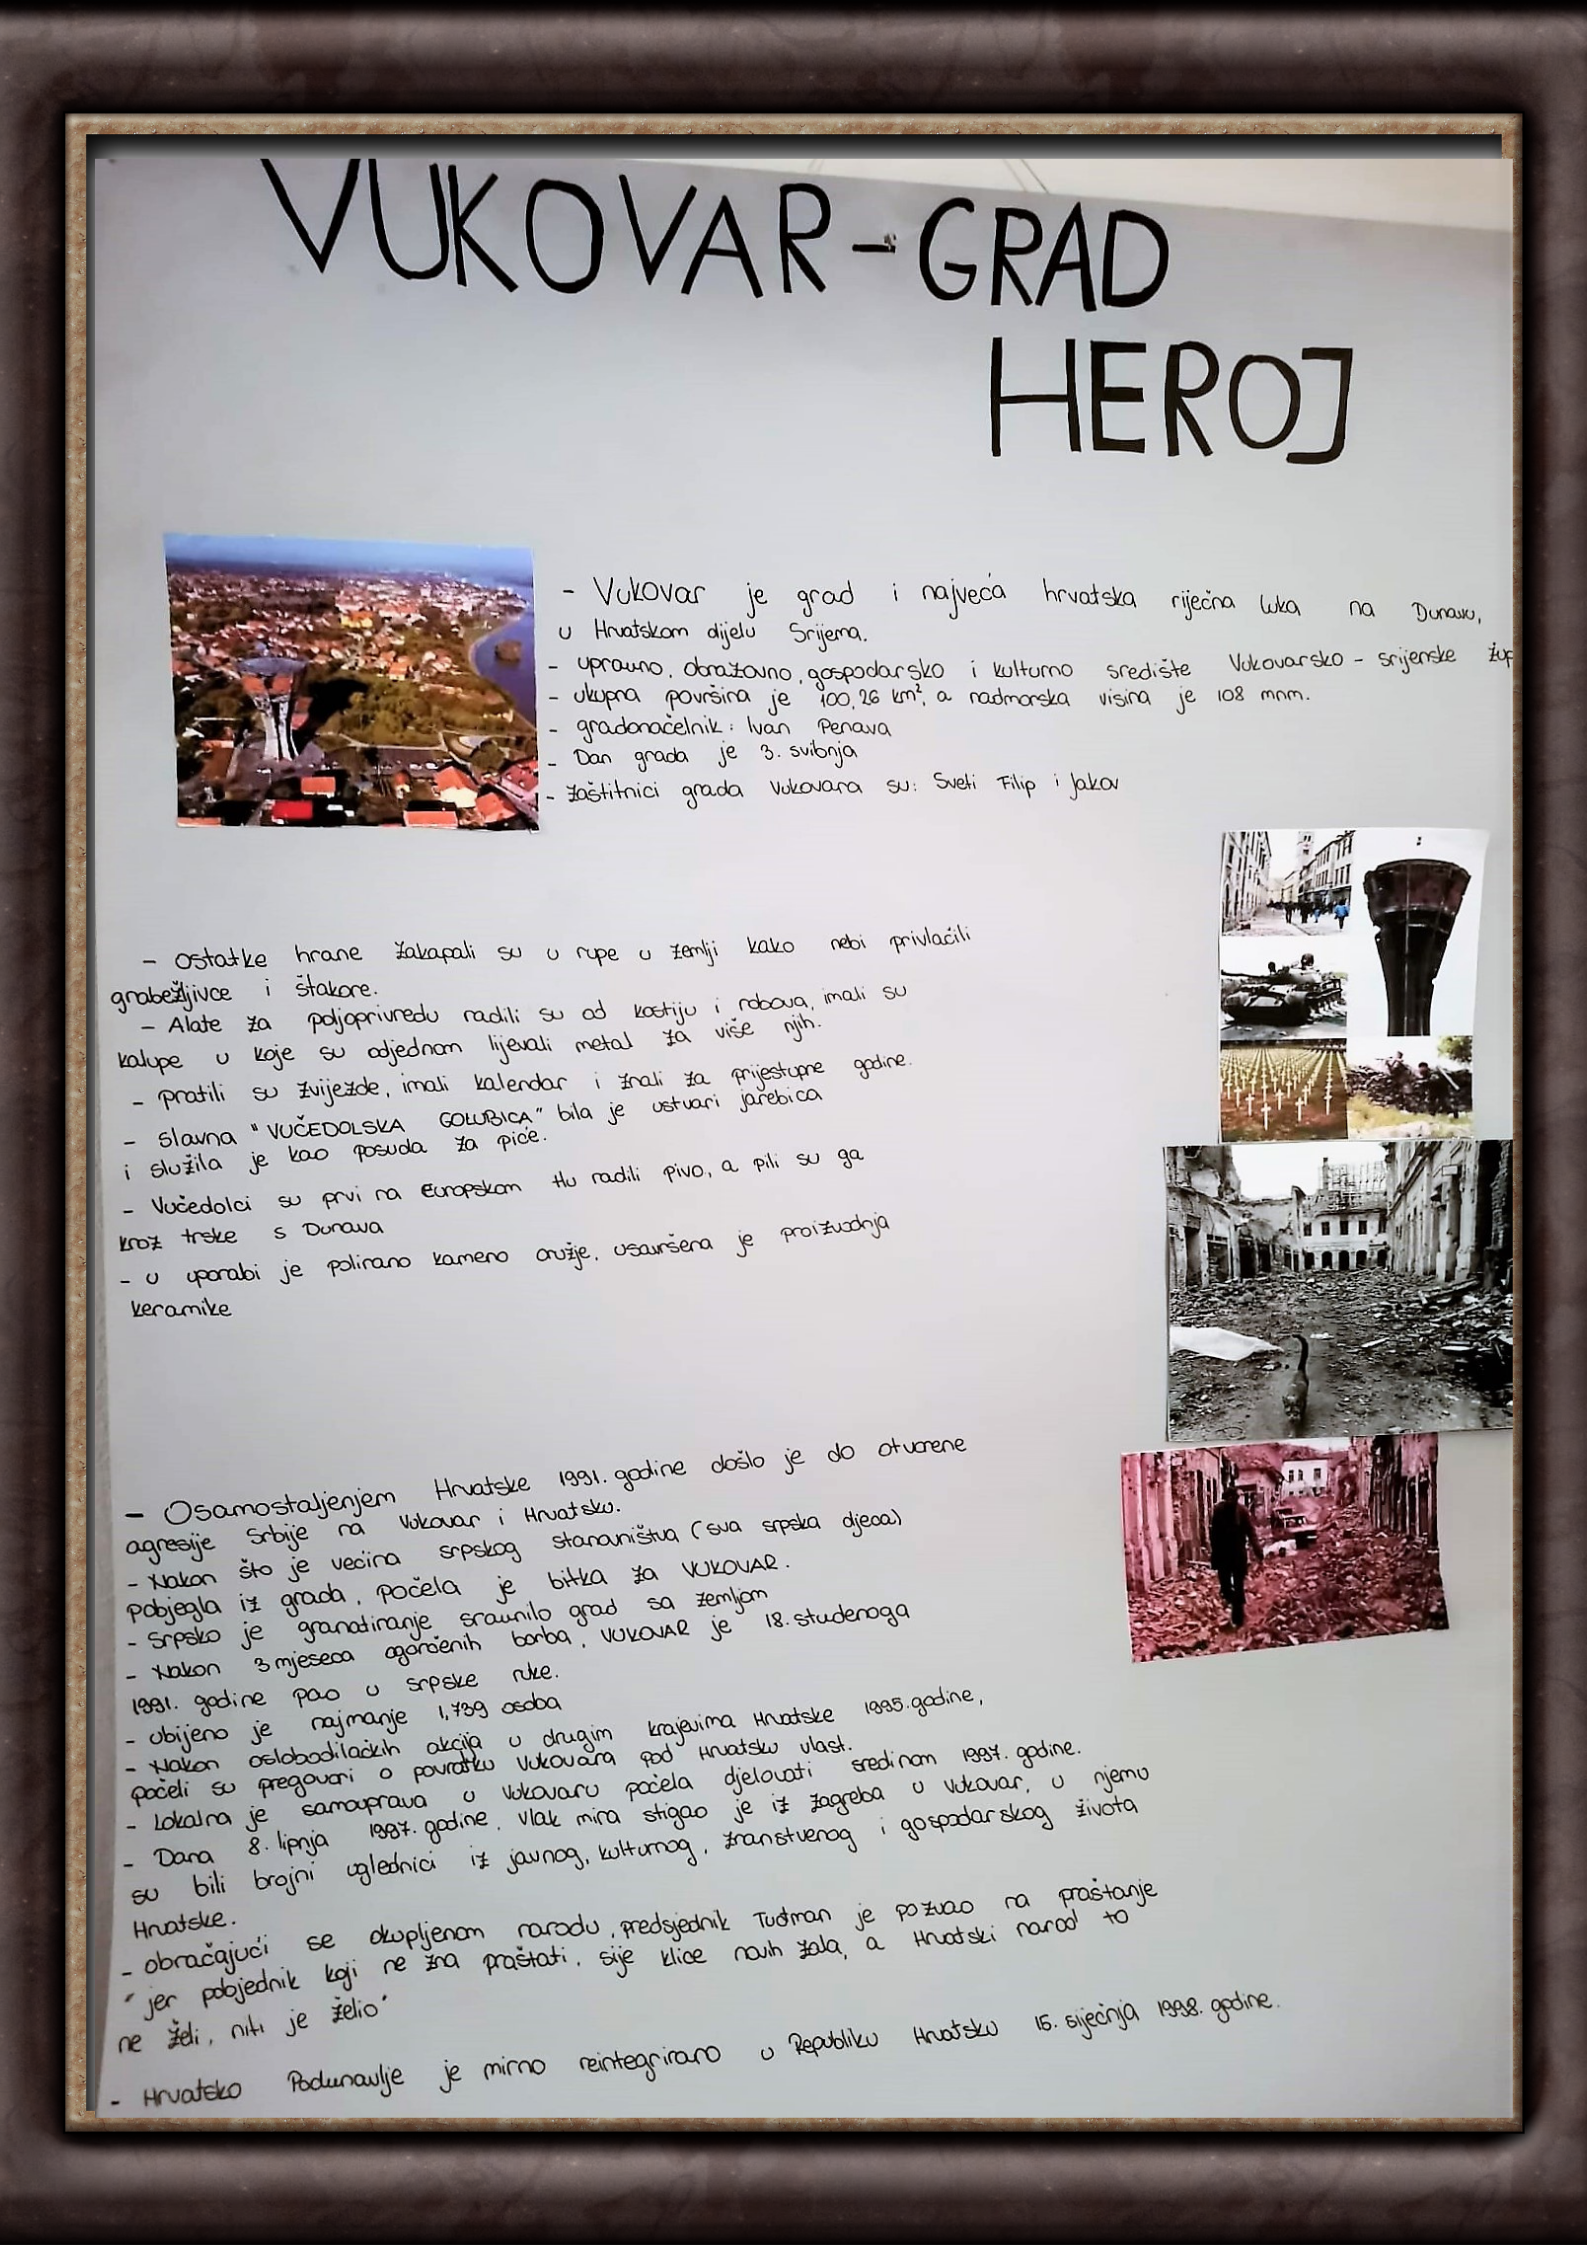 VUKOVAR - GRAD
HEROJ
- Vukovar je grad i najveća hrvatska riječna luka na Dunavu,
u Hrvatskom dijelu Srijema.
- upravno, obrazovno, gospodarsko i kulturno središte Vukovarsko - srijenske žup
- ukupna površina je 100,26 km², a nadmorska visina je 108 mnm.
- gradonačelnik: Ivan Penava
- Dan grada je 3. svibnja
- Zaštitnici grada Vukovara su: Sveti Filip i Jakov
- Ostatke hrane zakapali su u rupe u zemlji kako nebi privlačili
grabežljivce i štakore.
- Alate za poljoprivredu radili su od kostiju i robova, imali su
kalupe u koje su odjednom lijevali metal za više njih.
- pratili su zvijezde, imali kalendar i znali za prijestupne godine.
- slavna "VUČEDOLSKA GOLUBICA" bila je ustvari jarebica
i služila je kao posuda za piće.
- Vučedolci su prvi na Europskom tlu radili pivo, a pili su ga
kroz trske s Dunava
- u uporabi je polirano kameno oružje, usavršena je proizvodnja
keramike
- Osamostaljenjem Hrvatske 1991. godine došlo je do otvorene
agresije Srbije na Vukovar i Hrvatsku.
- Nakon što je većina srpskog stanovništva (sva srpska djeca)
pobjegla iz grada, počela je bitka za VUKOVAR.
- Srpsko je granatiranje sravnilo grad sa zemljom
- Nakon 3 mjeseca ogorčenih borba, VUKOVAR je 18. studenoga
1991. godine pao u srpske ruke.
- Ubijeno je najmanje 1,739 osoba
- Nakon oslobodilačkih akcija u drugim krajevima Hrvatske 1995. godine,
počeli su pregovori o povratku Vukovara pod Hrvatsku vlast.
- Lokalna je samouprava u Vukovaru počela djelovati sredinom 1997. godine.
- Dana 8. lipnja 1997. godine, vlak mira stigao je iz Zagreba u Vukovar, u njemu
su bili brojni uglednici iz javnog, kulturnog, znanstvenog i gospodarskog života
Hrvatske.
- obračajući se okupljenom narodu, predsjednik Tuđman je pozvao na praštanje
"jer pobjednik koji ne zna praštati, sije klice novih zala, a Hrvatski narod to
ne želi, niti je želio"
- Hrvatsko Podunavlje je mirno reintegrirano u Republiku Hrvatsku 15. siječnja 1998. godine.